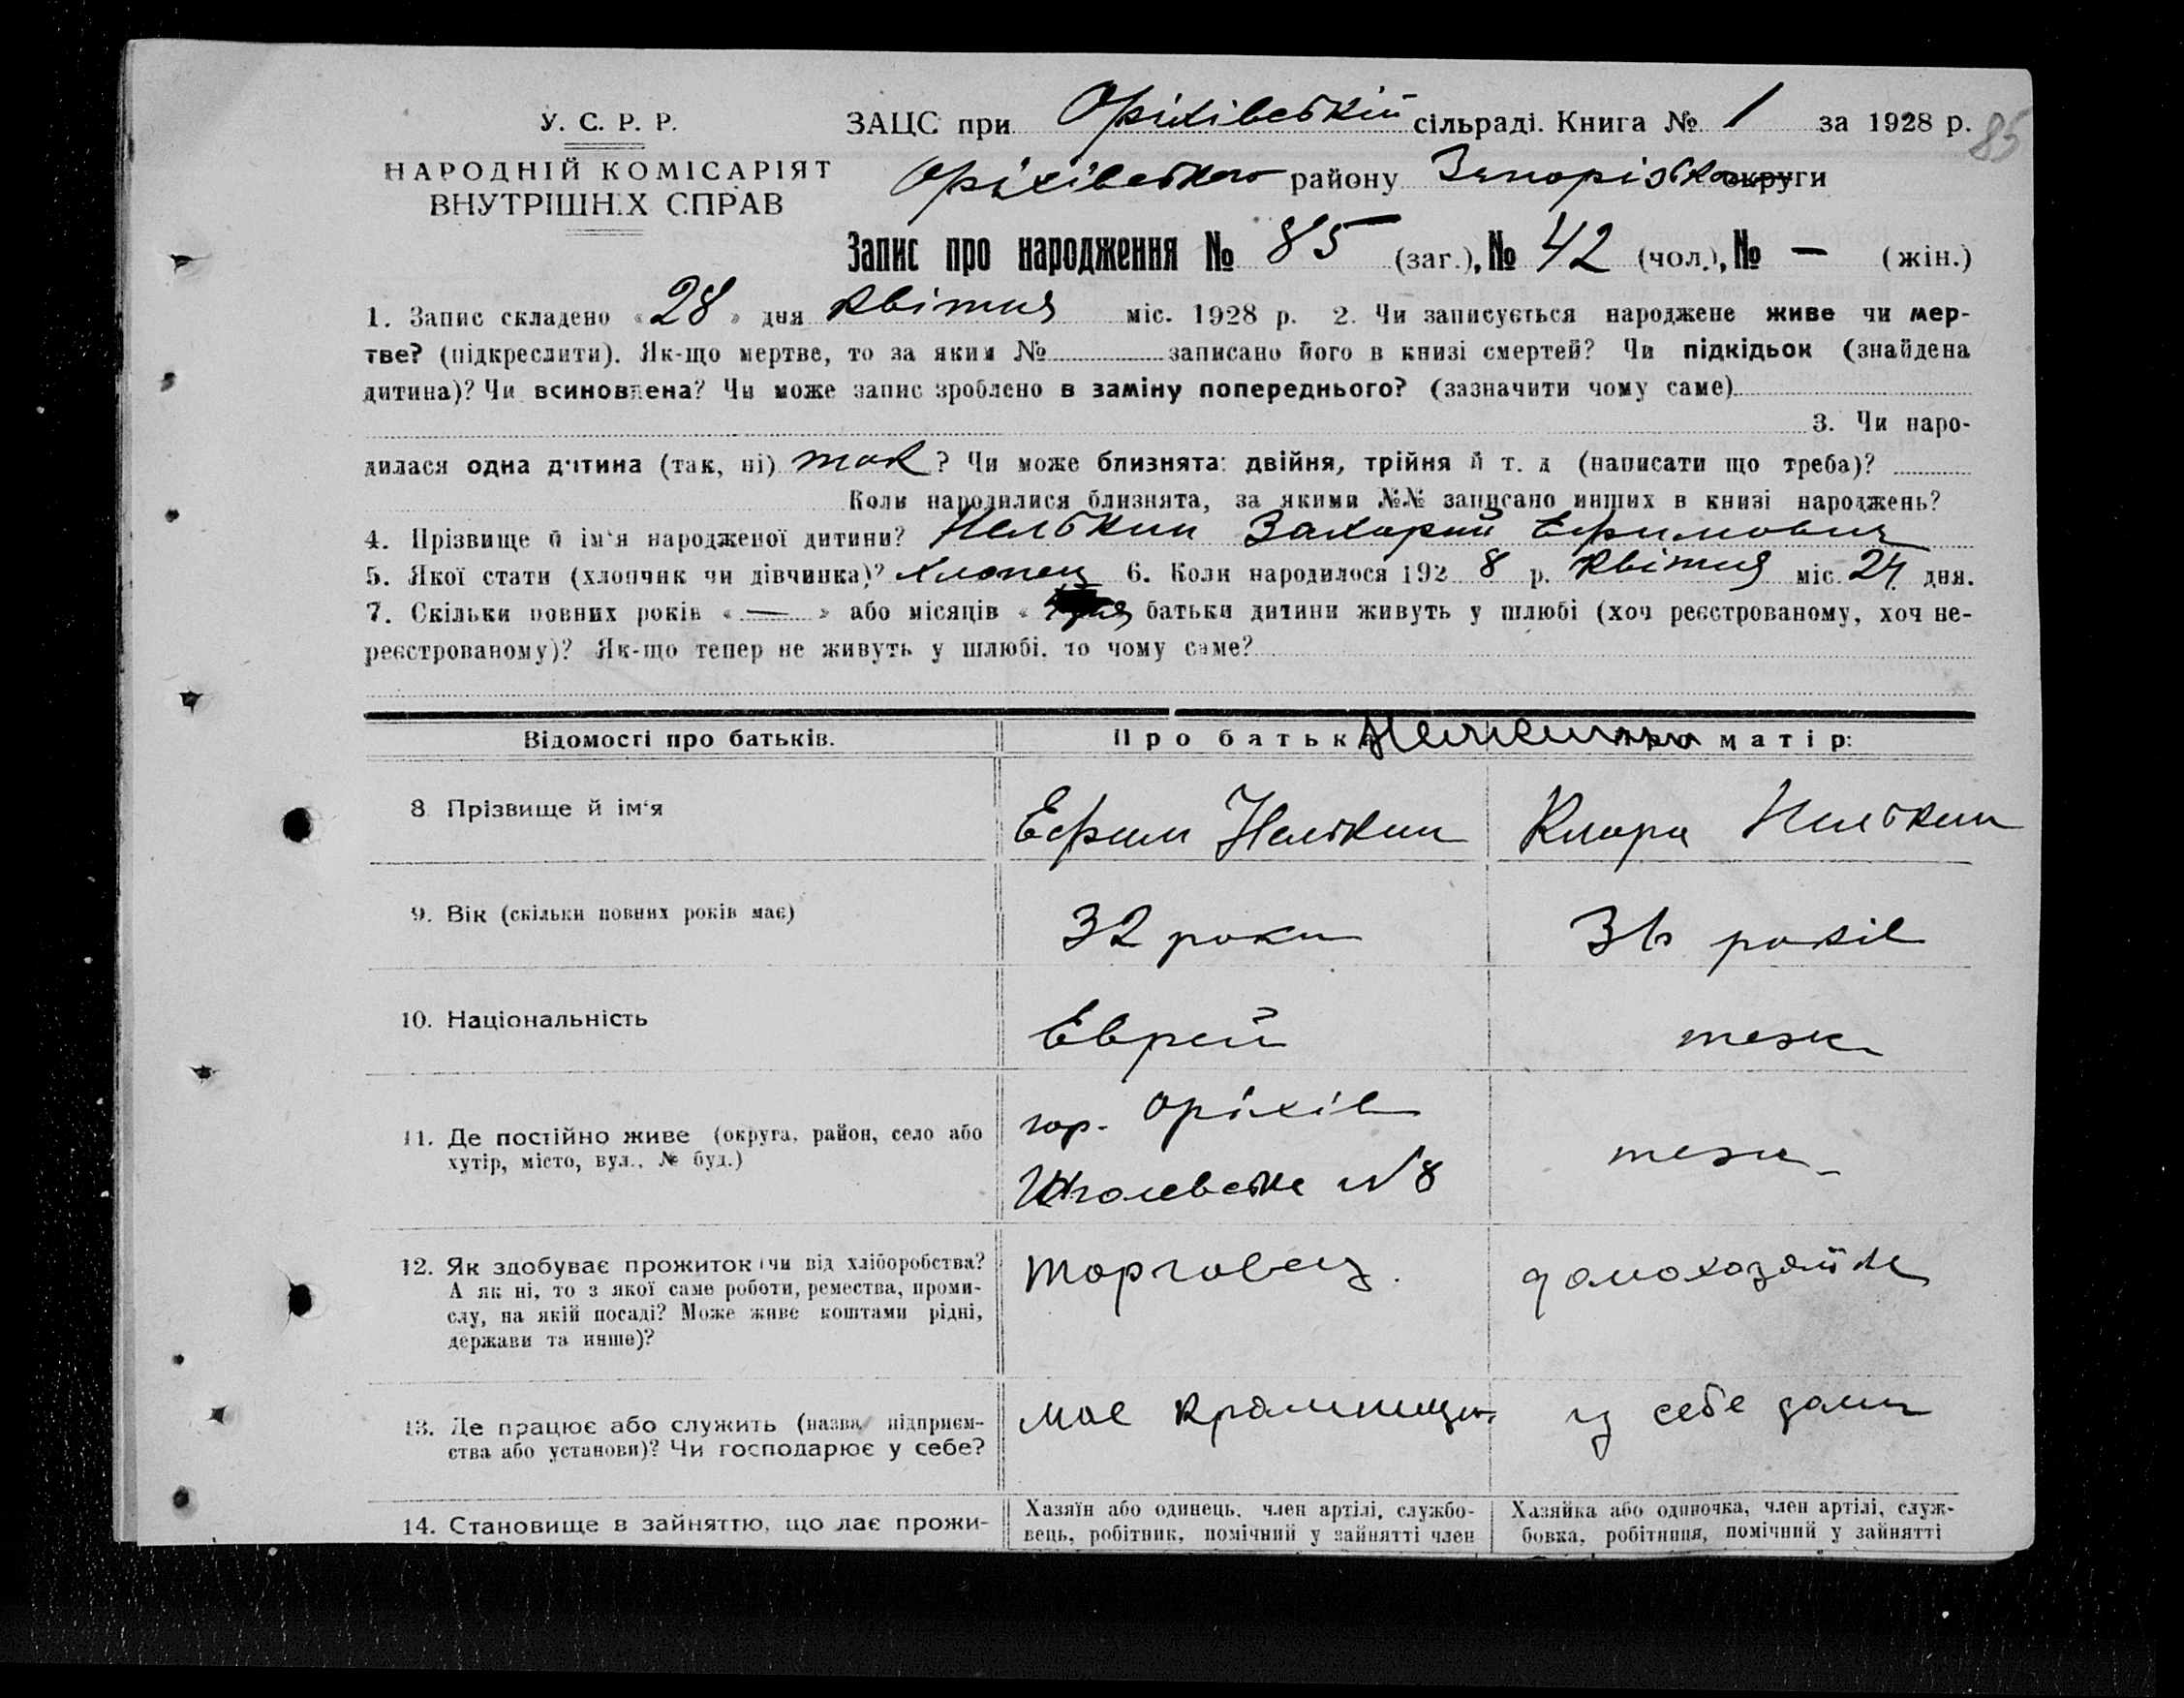 У. С. Р. Р.
НАРОДНІЙ КОМІСАРІЯТ
ВНУТРІШНІХ СПРАВ
ЗАЦС при Оріхівській сільраді. Книга № 1 за 1928 р. 85
Оріхівського району Запорізької округи
Запис про народження № 85 (заг.), № 42 (чол.), № — (жін.)
1. Запис складено «28» дня квітня міс. 1928 р. 2. Чи записується народжене живе чи мер-
тве? (підкреслити). Як-що мертве, то за яким № записано його в книзі смертей? Чи підкідьок (знайдена
дитина)? Чи всиновлена? Чи може запис зроблено в заміну попереднього? (зазначити чому саме)
3. Чи наро-
дилася одна дитина (так, ні) так? Чи може близнята: двійня, трійня й т. д (написати що треба)?
Коли народилися близнята, за якими №№ записано инших в книзі народжень?
4. Прізвище й ім‘я народженої дитини? Нелькин Захарий Ефимович
5. Якої стати (хлопчик чи дівчинка)? хлопец 6. Коли народилося 192 8 р. квітня міс. 24 дня.
7. Скільки повних років « — » або місяців « батьки дитини живуть у шлюбі (хоч реєстрованому, хоч не-
реєстрованому)? Як-що тепер не живуть у шлюбі, то чому саме?
Відомості про батьків. Про батька: Про матір:
8 Прізвище й ім‘я Ефим Нелькин Клара Нелькин
9. Вік (скільки повних років має) 32 роки років
10. Національність Еврей теж
11. Де постійно живе (округа, район, село або гор. Оріхів теж
хутір, місто, вул., № буд.) №8
12. Як здобуває прожиток (чи від хліборобства? Торговец. домохозяйка
А як ні, то з якої саме роботи, ремества, проми-
слу, на якій посаді? Може живе коштами рідні,
держави та инше)?
13. Де працює або служить (назва підприєм- має крамницю у себе дома
ства або установи)? Чи господарює у себе?
14. Становище в зайняттю, що дає прожи- Хазяїн або одинець, член артілі, службо- Хазяйка або одиночка, член артілі, служ-
вець, робітник, помічний у зайнятті член бовка, робітниця, помічний у зайнятті